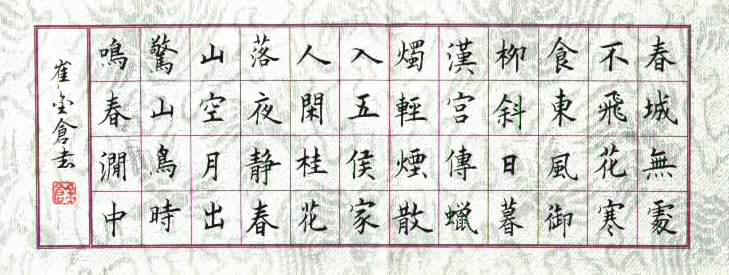 春城無處
不飛花寒
食東風御
柳斜日暮
漢宮傳蠟
燭輕煙散
入五侯家
人閑桂花
落夜静春
山空月出
驚山鳥時
鳴春澗中
崔金倉书